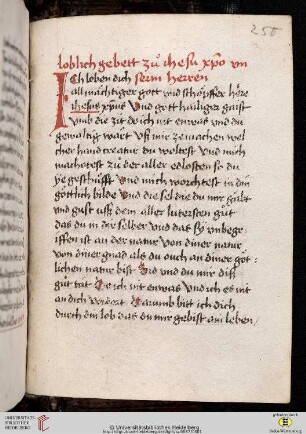 250
loblich gebett zů ihesu xp̄o vn
serm herren
Ich loben dich
allmächtiger gott vnd schöpffer here
ihesus xp̄us Vnd gott hailiger gaist
vmb die zit do ich nit enwas vnd du
gewaltig wart vß mir ze machen wel
cher hand creatur du woltest vnd mich
machtest zů der aller edlosten so du
ye geschüfft Vnd mich worchtest in din
göttlich bilde Vnd die sel die du mir gabt
vnd gust vsß dem aller lutersten gůt
das du in dir selber vnd das sy vnbegr
iffen ist an der natur von diner natur
von diner gnad als du ouch an diner göt
lichen natur bist Sid vnd du mir diß
gůt tät Do ich nit enwas Vnd ich es nit
an dich verdient Darumb bitt ich dich
durch din lob das du mir gebist am leben
UNIVERSITÄTS-
BIBLIOTHEK
HEIDELBERG
© Universitätsbibliothek Heidelberg